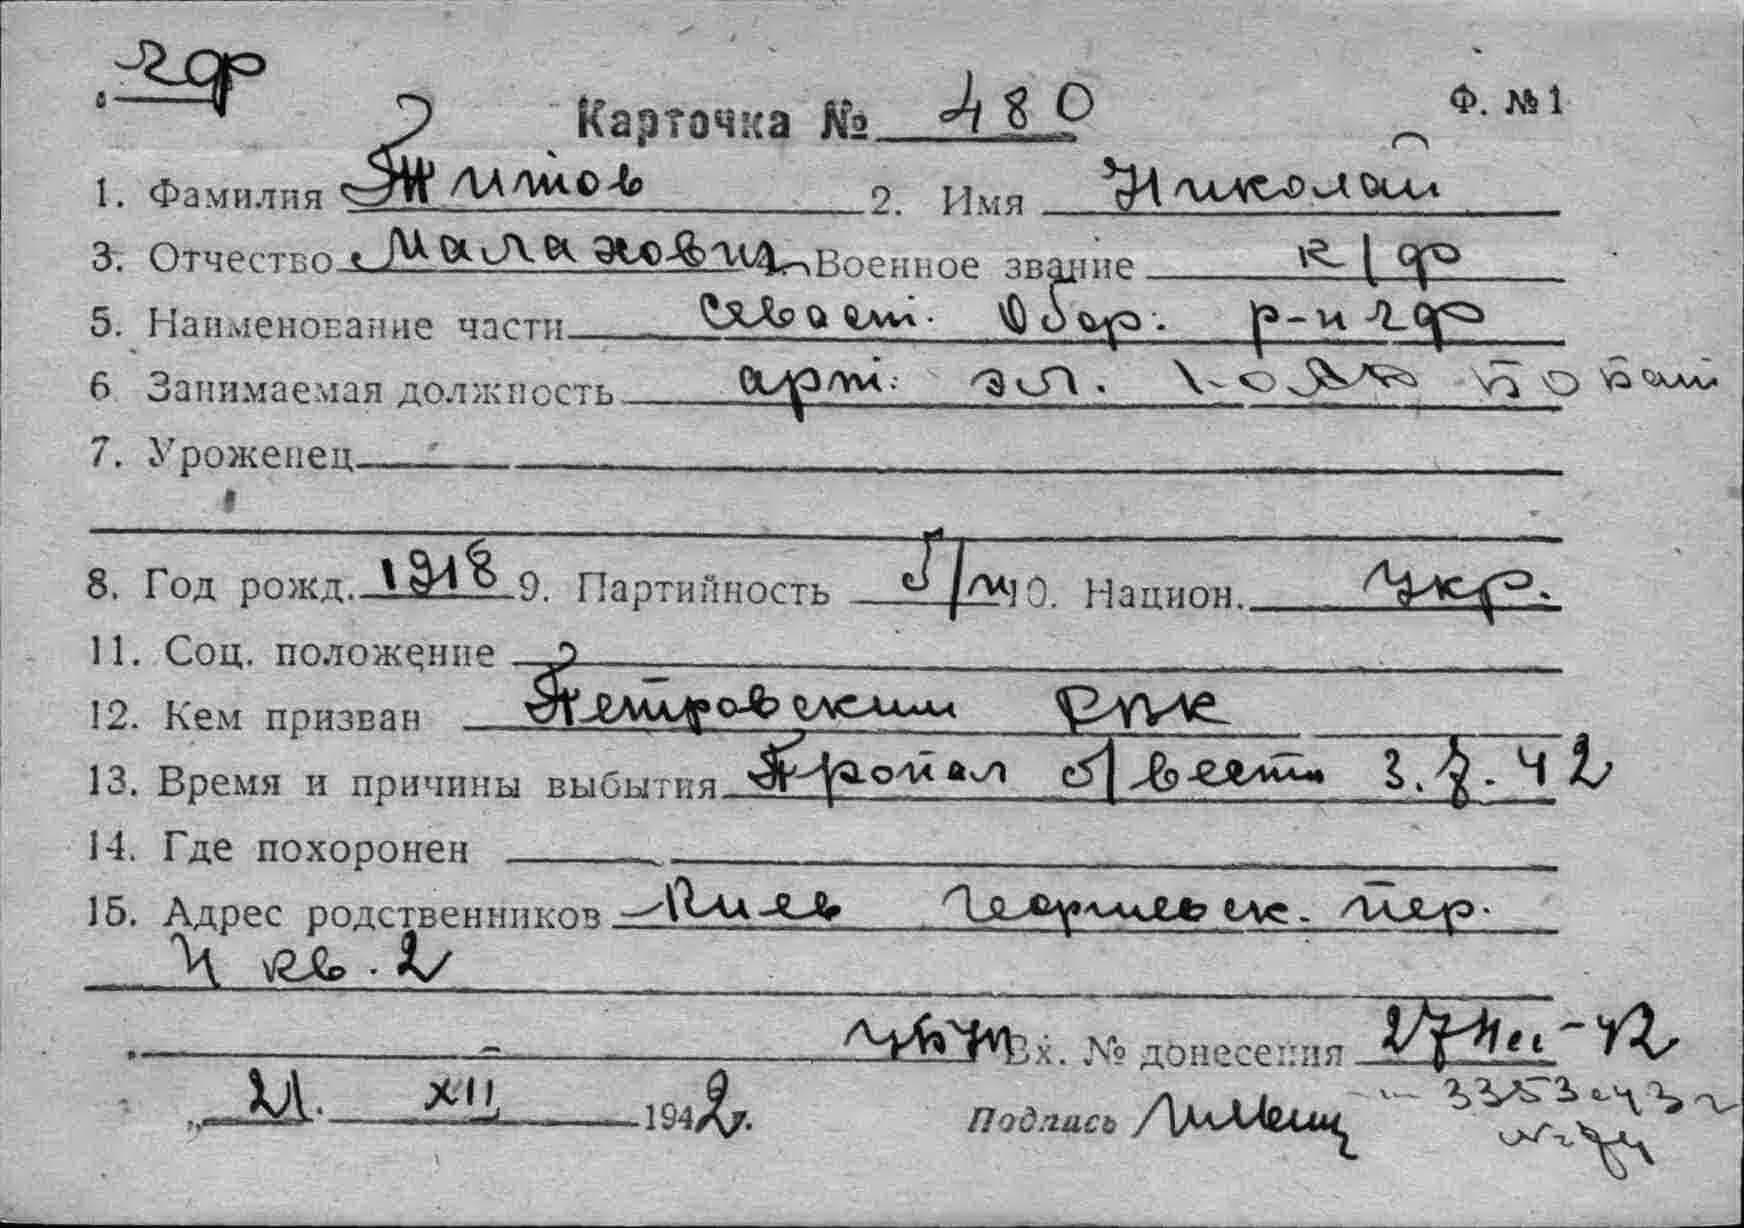 чф
Карточка № 480 Ф. №1
1. Фамилия Титов 2. Имя Николай
3. Отчество Малахович Военное звание к/ф
5. Наименование части Севаст. Обор. р-н чф
6 Занимаемая должность арт. эл. Бат
7. Уроженец
8. Год рожд. 1918 9. Партийность б/п 10. Национ. Укр.
11. Соц. положение
12. Кем призван Петровским РВК
13. Время и причины выбытия Пропал б/вести 3.7.42
14. Где похоронен
15. Адрес родственников Киев Георгиевск. пер.
4 кв. 2
Вх. № донесения 27
„21. XII 1942г.
Подпись